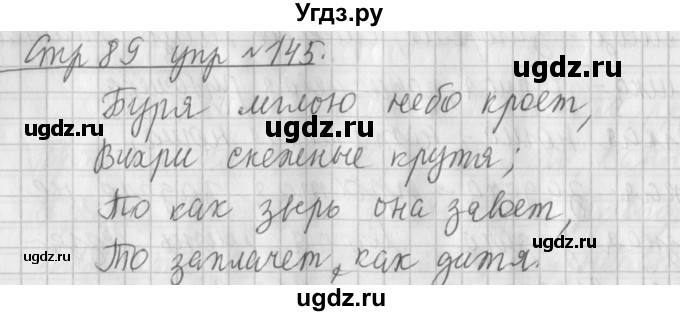 Угдз.ру
Стр 89 упр №145.
ugdz.ru
Буря мглою небо кроет,
ugdz.ru ugdz.ru ugdz.ru
Вихри снежные крутя;
То как зверь она завоет,
ugdz.ru ugdz.ru ugdz.ru
То заплачет, как дитя.
ugdz.ru